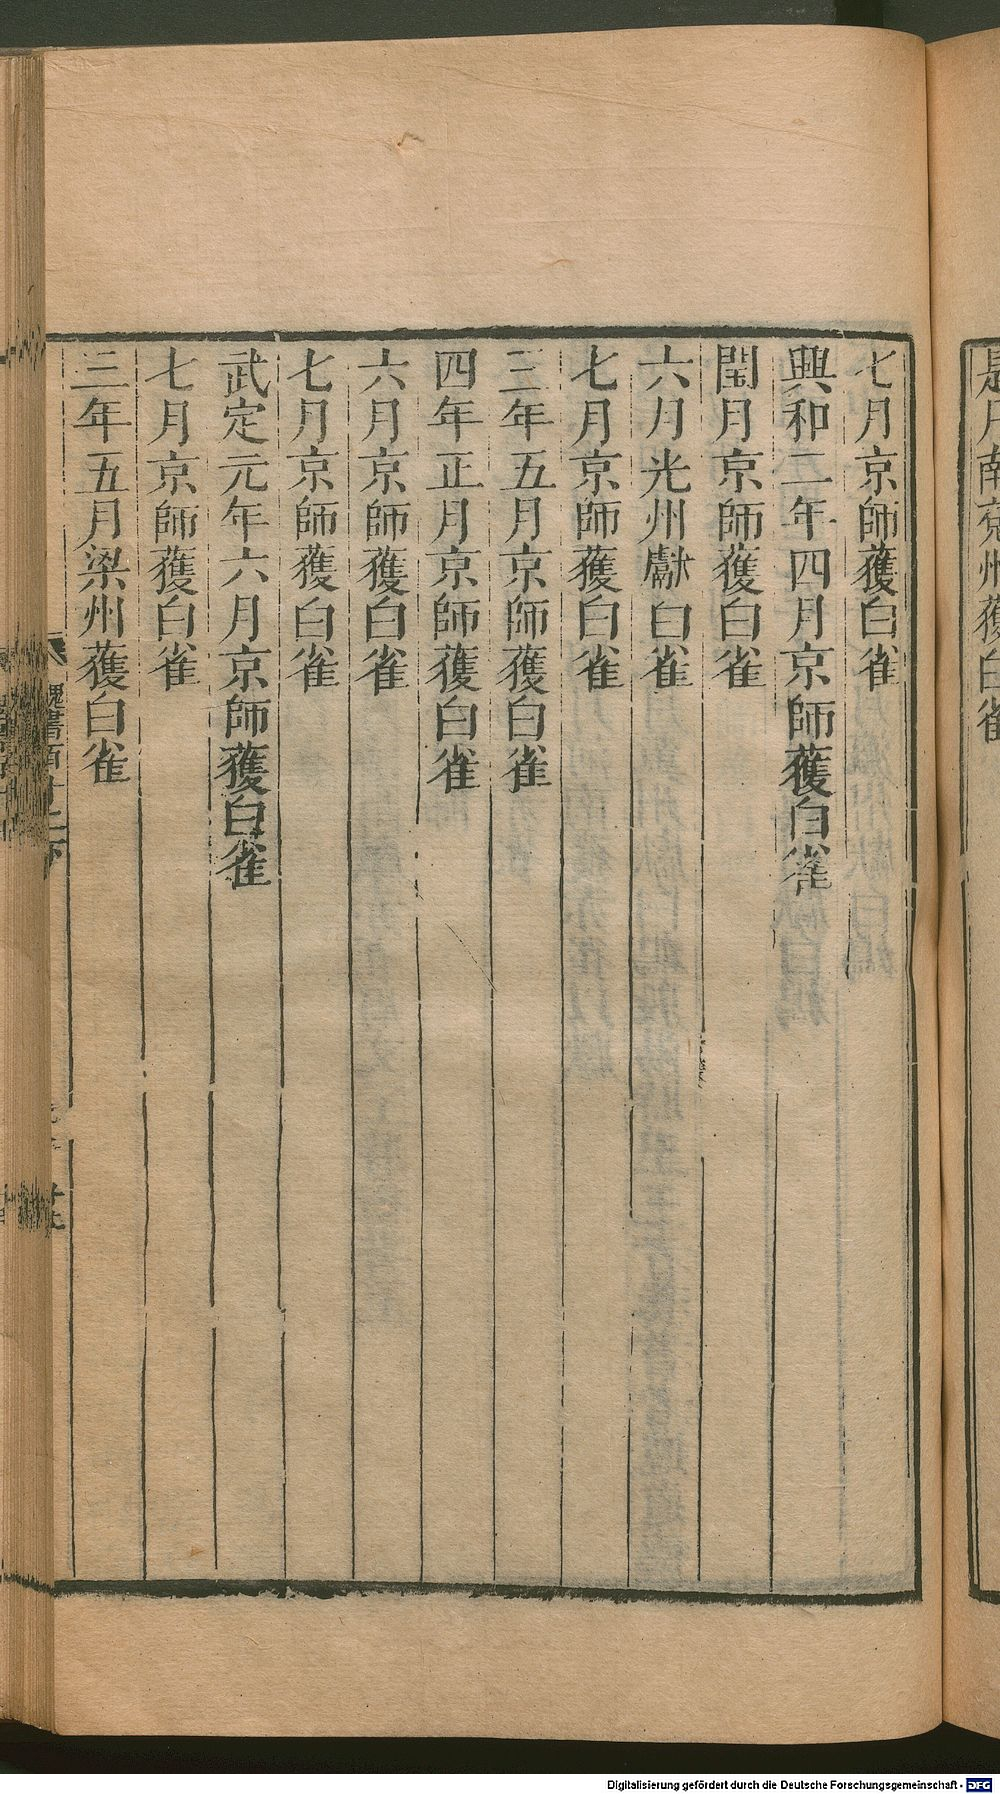 七月京師獲白雀
興和二年四月京師獲白雀
閏月京師獲白雀
六月光州獻白雀
七月京師獲白雀
三年五月京師獲白雀
四年正月京師獲白雀
六月京師獲白雀
七月京師獲白雀
武定元年六月京師獲白雀
七月京師獲白雀
三年五月梁州獲白雀
魏書
是月南兗州獲白雀
Digitalisierung gefördert durch die Deutsche Forschungsgemeinschaft - DFG